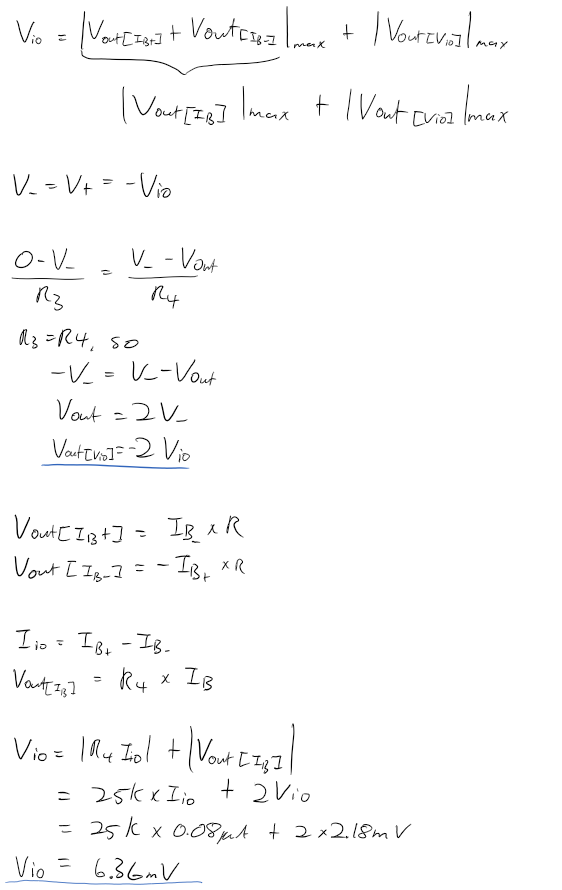 V_io = |V_out[IB+] + V_out[IB-]|_max + |V_out[Vio]|_max
|V_out[IB]|_max + |V_out[Vio]|_max
V_- = V_+ = -V_io
(0 - V_-)/R_3 = (V_- - V_out)/R_4
R_3 = R_4, so
-V_- = V_- - V_out
V_out = 2 V_-
V_out[Vio] = -2 V_io
V_out[IB+] = I_B- × R
V_out[IB-] = - I_B+ × R
I_io = I_B+ - I_B-
V_out[IB] = R_4 × I_B
V_io = |R_4 I_io| + |V_out[IB]|
= 25k × I_io + 2 V_io
= 25k × 0.08μA + 2 × 2.18mV
V_io = 6.36mV